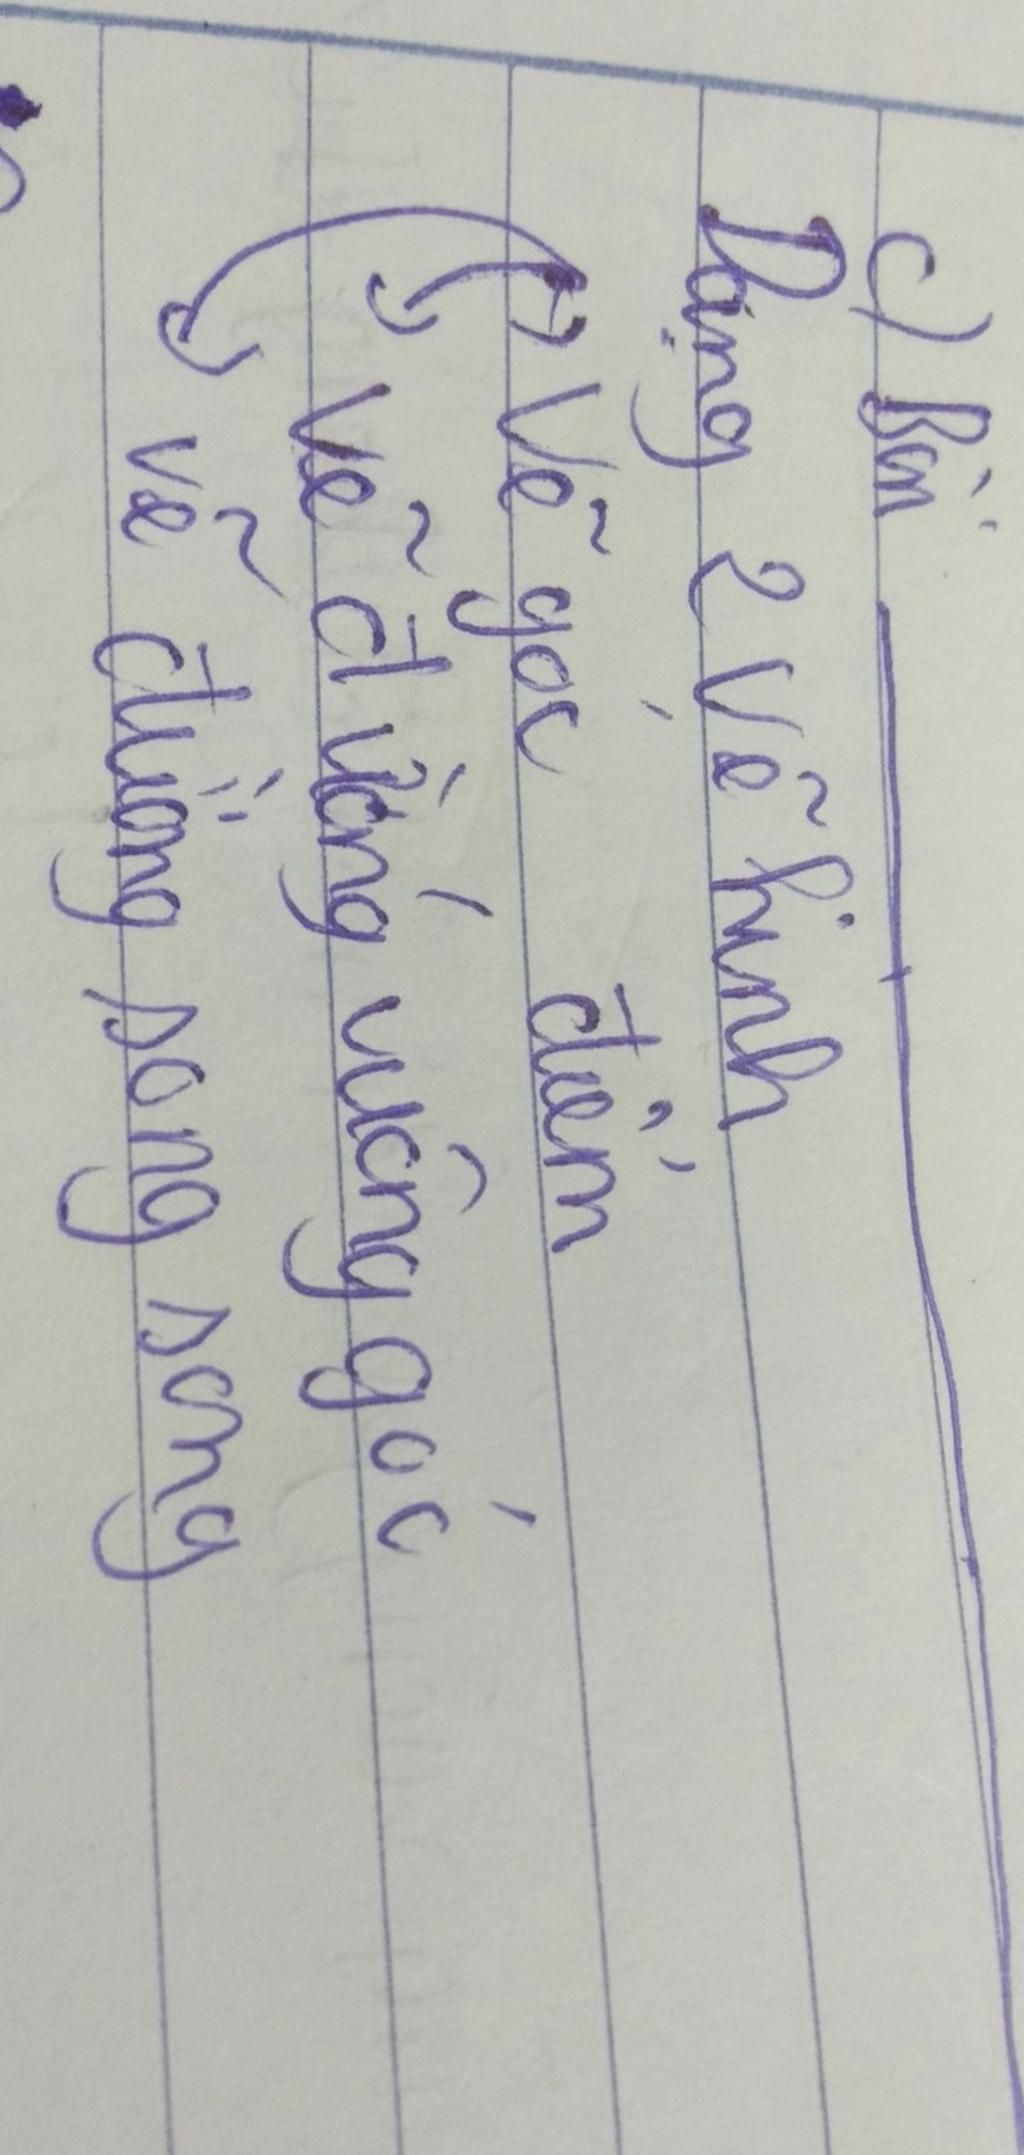 c) Bài
Dạng 2 Vẽ hình
Vẽ góc điểm
Vẽ đường vuông góc
vẽ đường song song